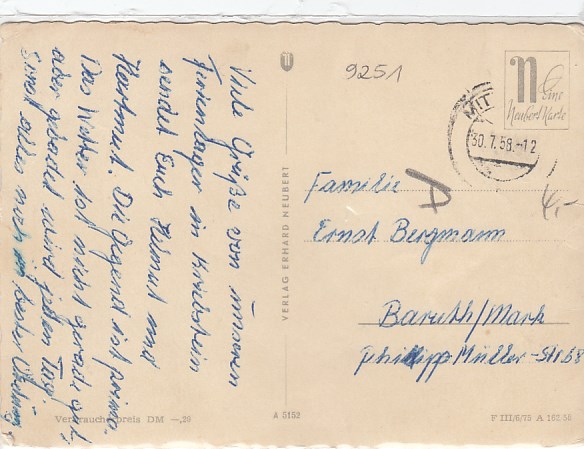 9251
n
Eine
Neubert Karte
MIT
30.7.58.-12
4,-
Viele Grüße vom unseren
Ferienlager in Kriebstein
sendet Euch Helmut und
Hartmut. Die Gegend ist prima.
Das Wetter ist nicht gerade gut,
aber gebadet wird jeden Tag.
Sonst alles noch in bester Ordnung
VERLAG ERHARD NEUBERT
Familie
Ernst Bergmann
Baruth/Mark
Philipp Müller-Str 58
Verbraucherpreis DM -,20
A 5152
F III/6/75 A 162/56